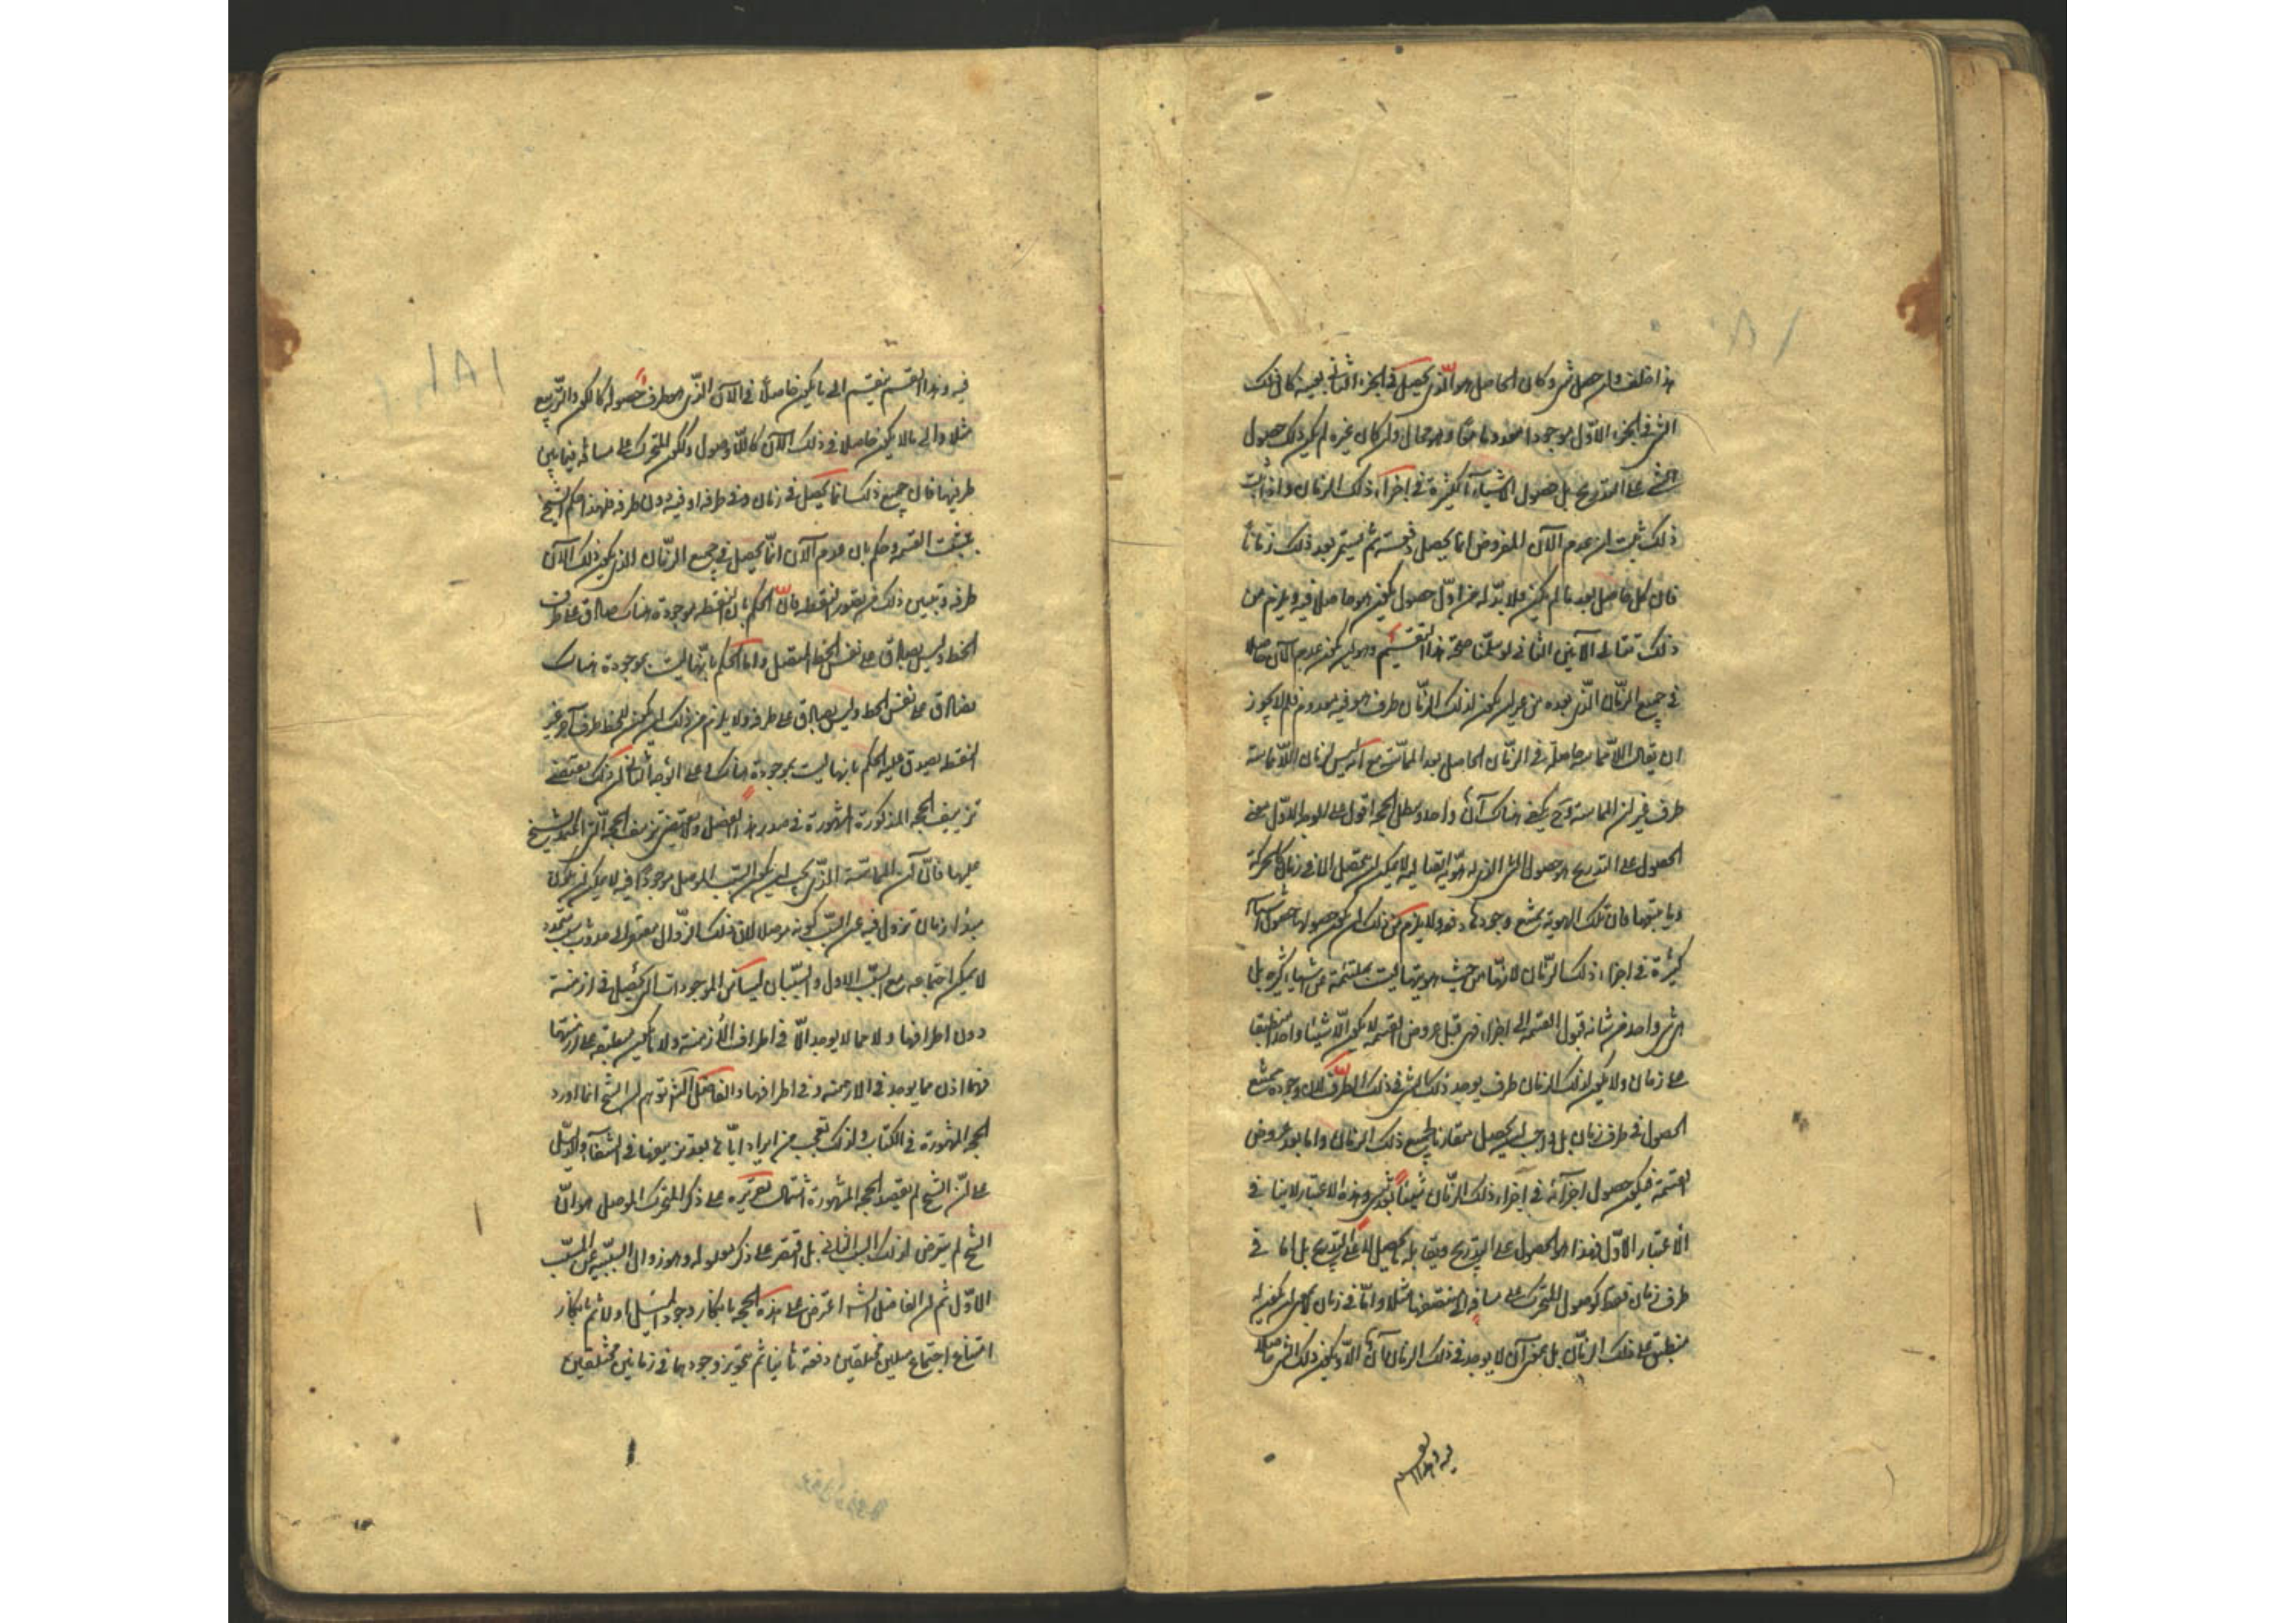 هذا خلف وان حصل شئ وكان الحاصل هو الذي يحصل في الجزء الثاني بعينه كان ذلك
الشئ في الجزء الاول موجودا معدوما معا وهو محال وان كان غيره لم يكن ذلك حصول
الشئ على التدريج بل حصول الاشياء الكثيرة في اجزاء ذلك الزمان واذا ثبت
ذلك ثبت ان عدم الآن المفروض انما يحصل دفعة ثم يستمر بعد ذلك زمانا
فان كل حاصل بعد ما لم يكن فلا بد له من اول حصول يكون هو حاصلا فيه ويلزم من
ذلك تتالي الآنين الثاني لو سلمنا صحة هذا التقسيم وهو ان يكون عدم الآن حاصلا
في جميع الزمان الذي بعده من غير ان يكون لذلك الزمان طرف هو فيه معدوم فلم لا يجوز
ان يقال اللامماسة حاصلة في الزمان الحاصل بعد المماسة مع انه ليس لزمان اللامماسة
طرف غير آن المماسة وح يكفي هناك آن واحد وبطل الحجة اقول على الوجه الاول معنى
الحصول على التدريج هو حصول الشئ الذي له هوية اتصالية لا يمكن ان يتحصل الا في زمان كالحركة
وما يتبعها فان تلك الهوية يمتنع وجودها دفعة ولا يلزم من ذلك ان يكون حصولها حصول اشياء
كثيرة في اجزاء ذلك الزمان لانها من حيث هويتها ليست بملتئمة عن اشياء كثيرة بل
هي شئ واحد من شانه قبول القسمة الى اجزاء فهي قبل عروض القسمة لا يكون الا شيئا واحدا منطبقا
على زمان ولا يكون لذلك الزمان طرف يوجد ذلك الشئ في ذلك الطرف لان وجوده ممتنع
الحصول في طرف زمان بل واجب ان يحصل مقارنا لجميع ذلك الزمان واما بعد عروض
القسمة فيكون حصول اجزائه في اجزاء ذلك الزمان شيئا بعد شئ وهذا الاعتبار لا ينافي
الاعتبار الاول فهذا هو الحصول على التدريج ويقابله ما يحصل لا على التدريج بل اما في
طرف زمان فقط كوصول المتحرك على مسافة الى منتصفها مثلا واما في زمان لا بمعنى ان يكون له
منطبق على ذلك الزمان بل بمعنى ان لا يوجد في ذلك الزمان آن الا ويكون ذلك الشئ حاصلا
فيه وهذا القسم
فيه وهذا القسم ينقسم الى ما يكون حاصلا في الآن الذي هو طرف حصوله كالكون والتربيع
مثلا والى ما لا يكون حاصلا في ذلك الآن كاللاوصول وككون المتحرك على مسافة فيما بين
طرفيها فان جميع ذلك انما يحصل في زمان وفي طرفه او فيه دون طرفه فلهذا حكم الشيخ
بتحقق القسمة وحكم بان عدم الآن انما يحصل في جميع الزمان الذي يكون ذلك الآن
طرفه ويتبين ذلك من تصور النقطة فان الحكم بان النقطة موجودة هناك صادق على طرف
الخط وليس بصادق على نفس الخط المتصل واما الحكم بانها ليست بموجودة هناك
فصادق على نفس الخط وليس بصادق على طرفه ولا يلزم من ذلك ان يكون للخط طرف آخر غير
النقطة يصدق عليه الحكم بانها ليست بموجودة هناك وعلى الوجه الثاني ان ذلك يقتضي
تزييف الحجة المذكورة المشهورة في صدر هذا الفصل ولا يقتضي تزييف الحجة التي اعتمد الشيخ
عليها فان آن المماسة الذي يجب ان يكون السبب الموصل موجودا فيه لا يمكن ان يكون
مبدأ زمان تزول فيه عن السبب كونه موصلا لان ذلك الزوال مفتقر الى حدوث سبب متجدد
لا يمكن اجتماعه مع السبب الاول والسببان ليسا من الموجودات التي يحصل في ازمنة
دون اطرافها ولا مما لا يوجد الا في اطراف الازمنة ولا ما يكون منطبقة على ازمنتها
فهما اذن مما يوجد في الازمنة وفي اطرافها والفاضل الشارح توهم ان الشيخ انما اورد
الحجة المشهورة في الكتاب ولذلك تعجب من ايراده اياها بعد تزييفها في الشفاء والدليل
على ان الشيخ لم يقصد الحجة المشهورة اشتمال تقريره على ذكر المحرك الموصل هو ان
الشيخ لم يتعرض لذلك السبب الثاني بل اقتصر على ذكر معلوله وهو زوال السببية عن السبب
الاول ثم ان الفاضل الشارح اعترض على هذه الحجة بانكار وجود الميل اولا ثم بانكار
امتناع اجتماع ميلين مختلفين دفعة ثانيا ثم بتجويز وجودهما في زمانين مختلفين